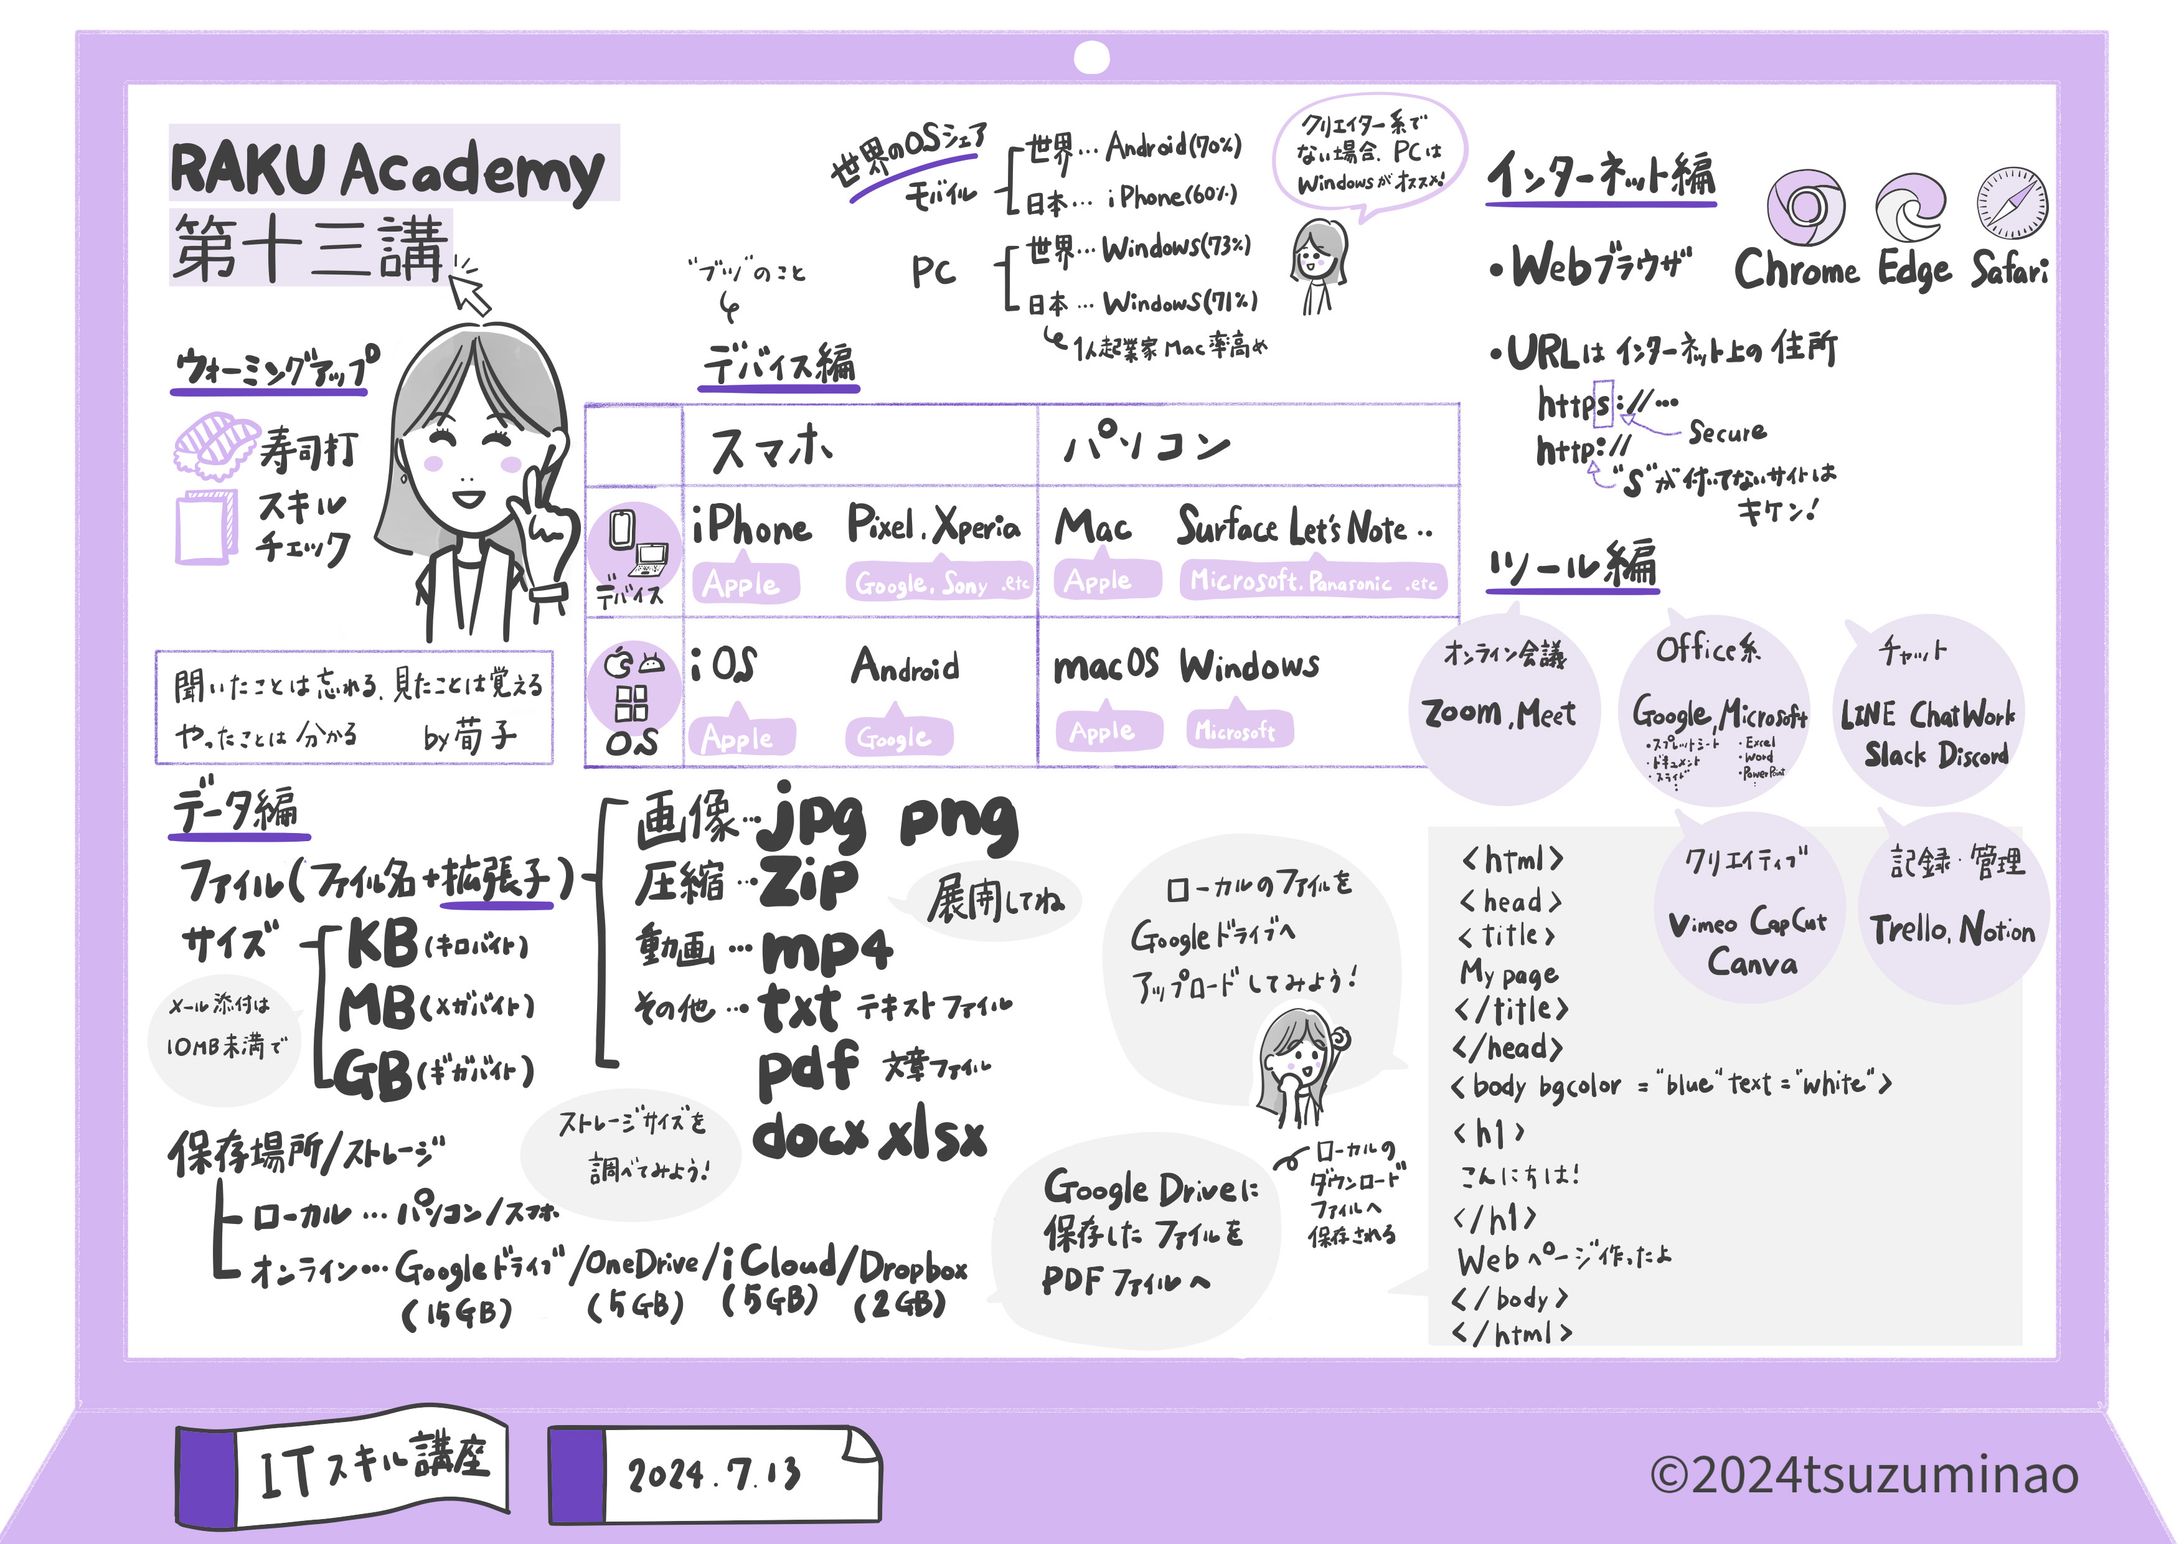 RAKU Academy
第十三講
ウォーミングアップ
寿司打
スキル
チェック
聞いたことは忘れる、見たことは覚える
やったことは分かる by荀子
世界のOSシェア
モバイル
世界…Android(70%)
日本…iPhone(60%)
PC
世界…Windows(73%)
日本…Windows(71%)
1人起業家Mac率高め
クリエイター系で
ない場合、PCは
Windowsがオススメ!
"ブツ"のこと
デバイス編
スマホ パソコン
デバイス
iPhone Pixel, Xperia Mac Surface Let's Note ..
Apple Google, Sony .etc Apple Microsoft, Panasonic .etc
OS
iOS Android macOS Windows
Apple Google Apple Microsoft
データ編
ファイル(ファイル名+拡張子)
画像…jpg png
圧縮…zip
展開してね
動画…mp4
その他…txt テキストファイル
pdf 文章ファイル
docx xlsx
サイズ
KB(キロバイト)
MB(メガバイト)
GB(ギガバイト)
メール添付は
10MB未満で
保存場所/ストレージ
ローカル…パソコン/スマホ
オンライン…Googleドライブ/OneDrive/iCloud/Dropbox
(15GB) (5GB) (5GB) (2GB)
ストレージサイズを
調べてみよう!
ローカルのファイルを
Googleドライブへ
アップロードしてみよう!
Google Driveに
保存したファイルを
PDFファイルへ
ローカルの
ダウンロード
ファイルへ
保存される
インターネット編
・Webブラウザ
Chrome Edge Safari
・URLはインターネット上の住所
https://…
Secure
http://
"S"が付いてないサイトは
キケン!
ツール編
オンライン会議
Zoom, Meet
Office系
Google, Microsoft
・スプレットシート
・ドキュメント
・スライド
・Excel
・Word
・PowerPoint
チャット
LINE ChatWork
Slack Discord
クリエイティブ
Vimeo CapCut
Canva
記録・管理
Trello, Notion
<html>
<head>
<title>
My page
</title>
</head>
<body bgcolor ="blue" text ="white">
<h1>
こんにちは!
</h1>
Webページ作ったよ
</body>
</html>
ITスキル講座
2024.7.13
©2024tsuzuminao